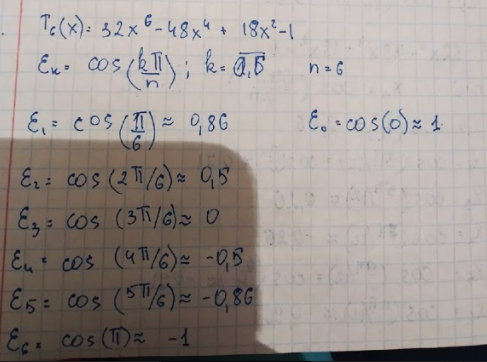 T₆(x) = 32x⁶ - 48x⁴ + 18x² - 1
Ɛₖ = cos(kπ/n) ; k = 0,6 n = 6
Ɛ₁ = cos(π/6) ≈ 0,86 Ɛ₀ = cos(0) ≈ 1
Ɛ₂ = cos(2π/6) ≈ 0,5
Ɛ₃ = cos(3π/6) ≈ 0
Ɛ₄ = cos(4π/6) ≈ -0,5
Ɛ₅ = cos(5π/6) ≈ -0,86
Ɛ₆ = cos(π) ≈ -1